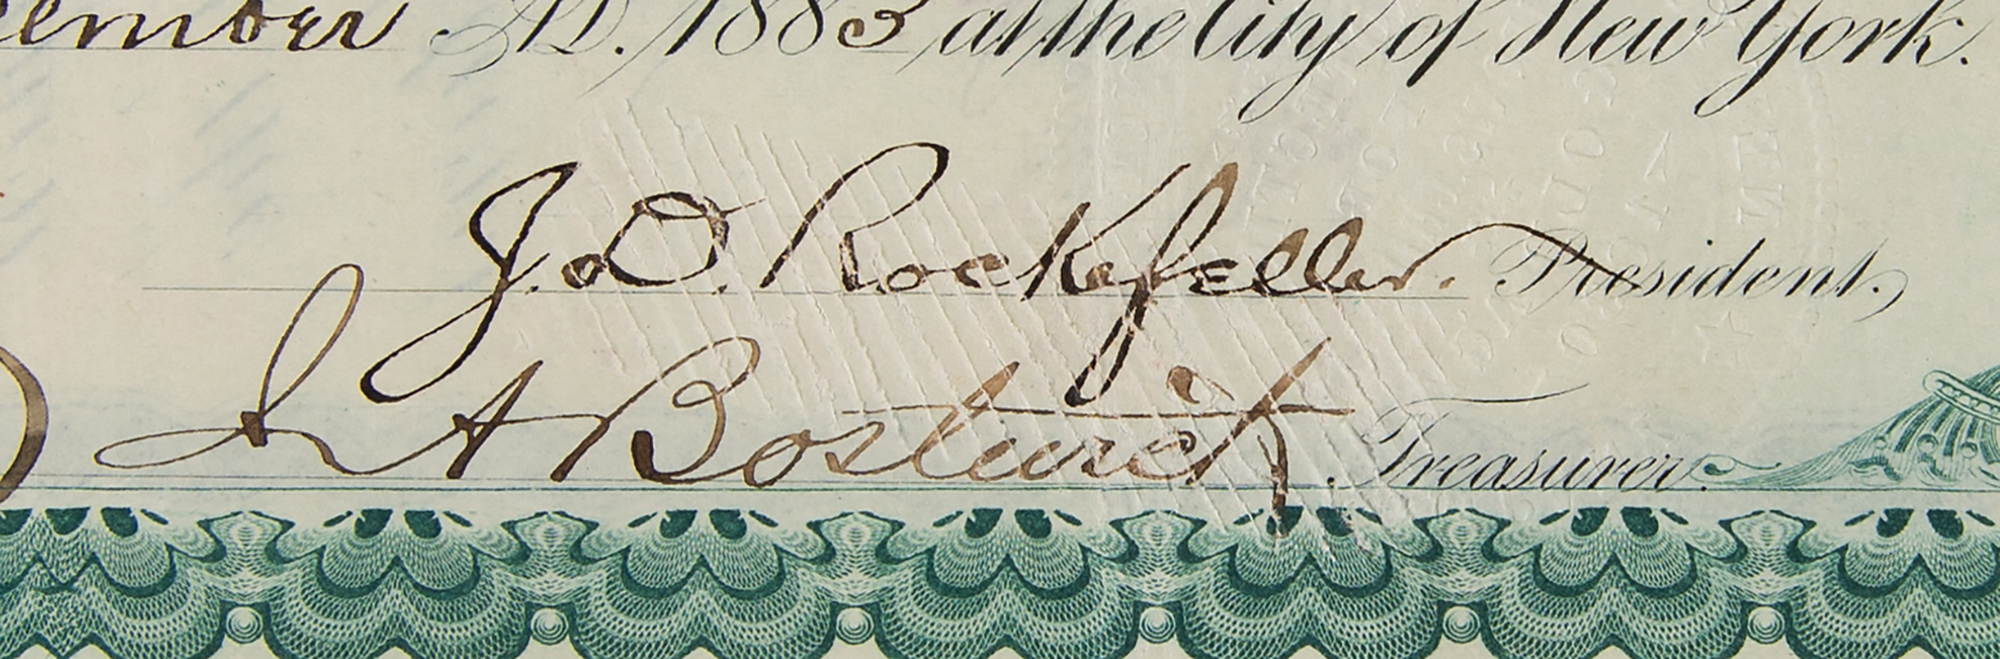 ember A.D. 1883 at the City of New York.
J.D. Rockefeller. President.
J A Bostwick. Treasurer.